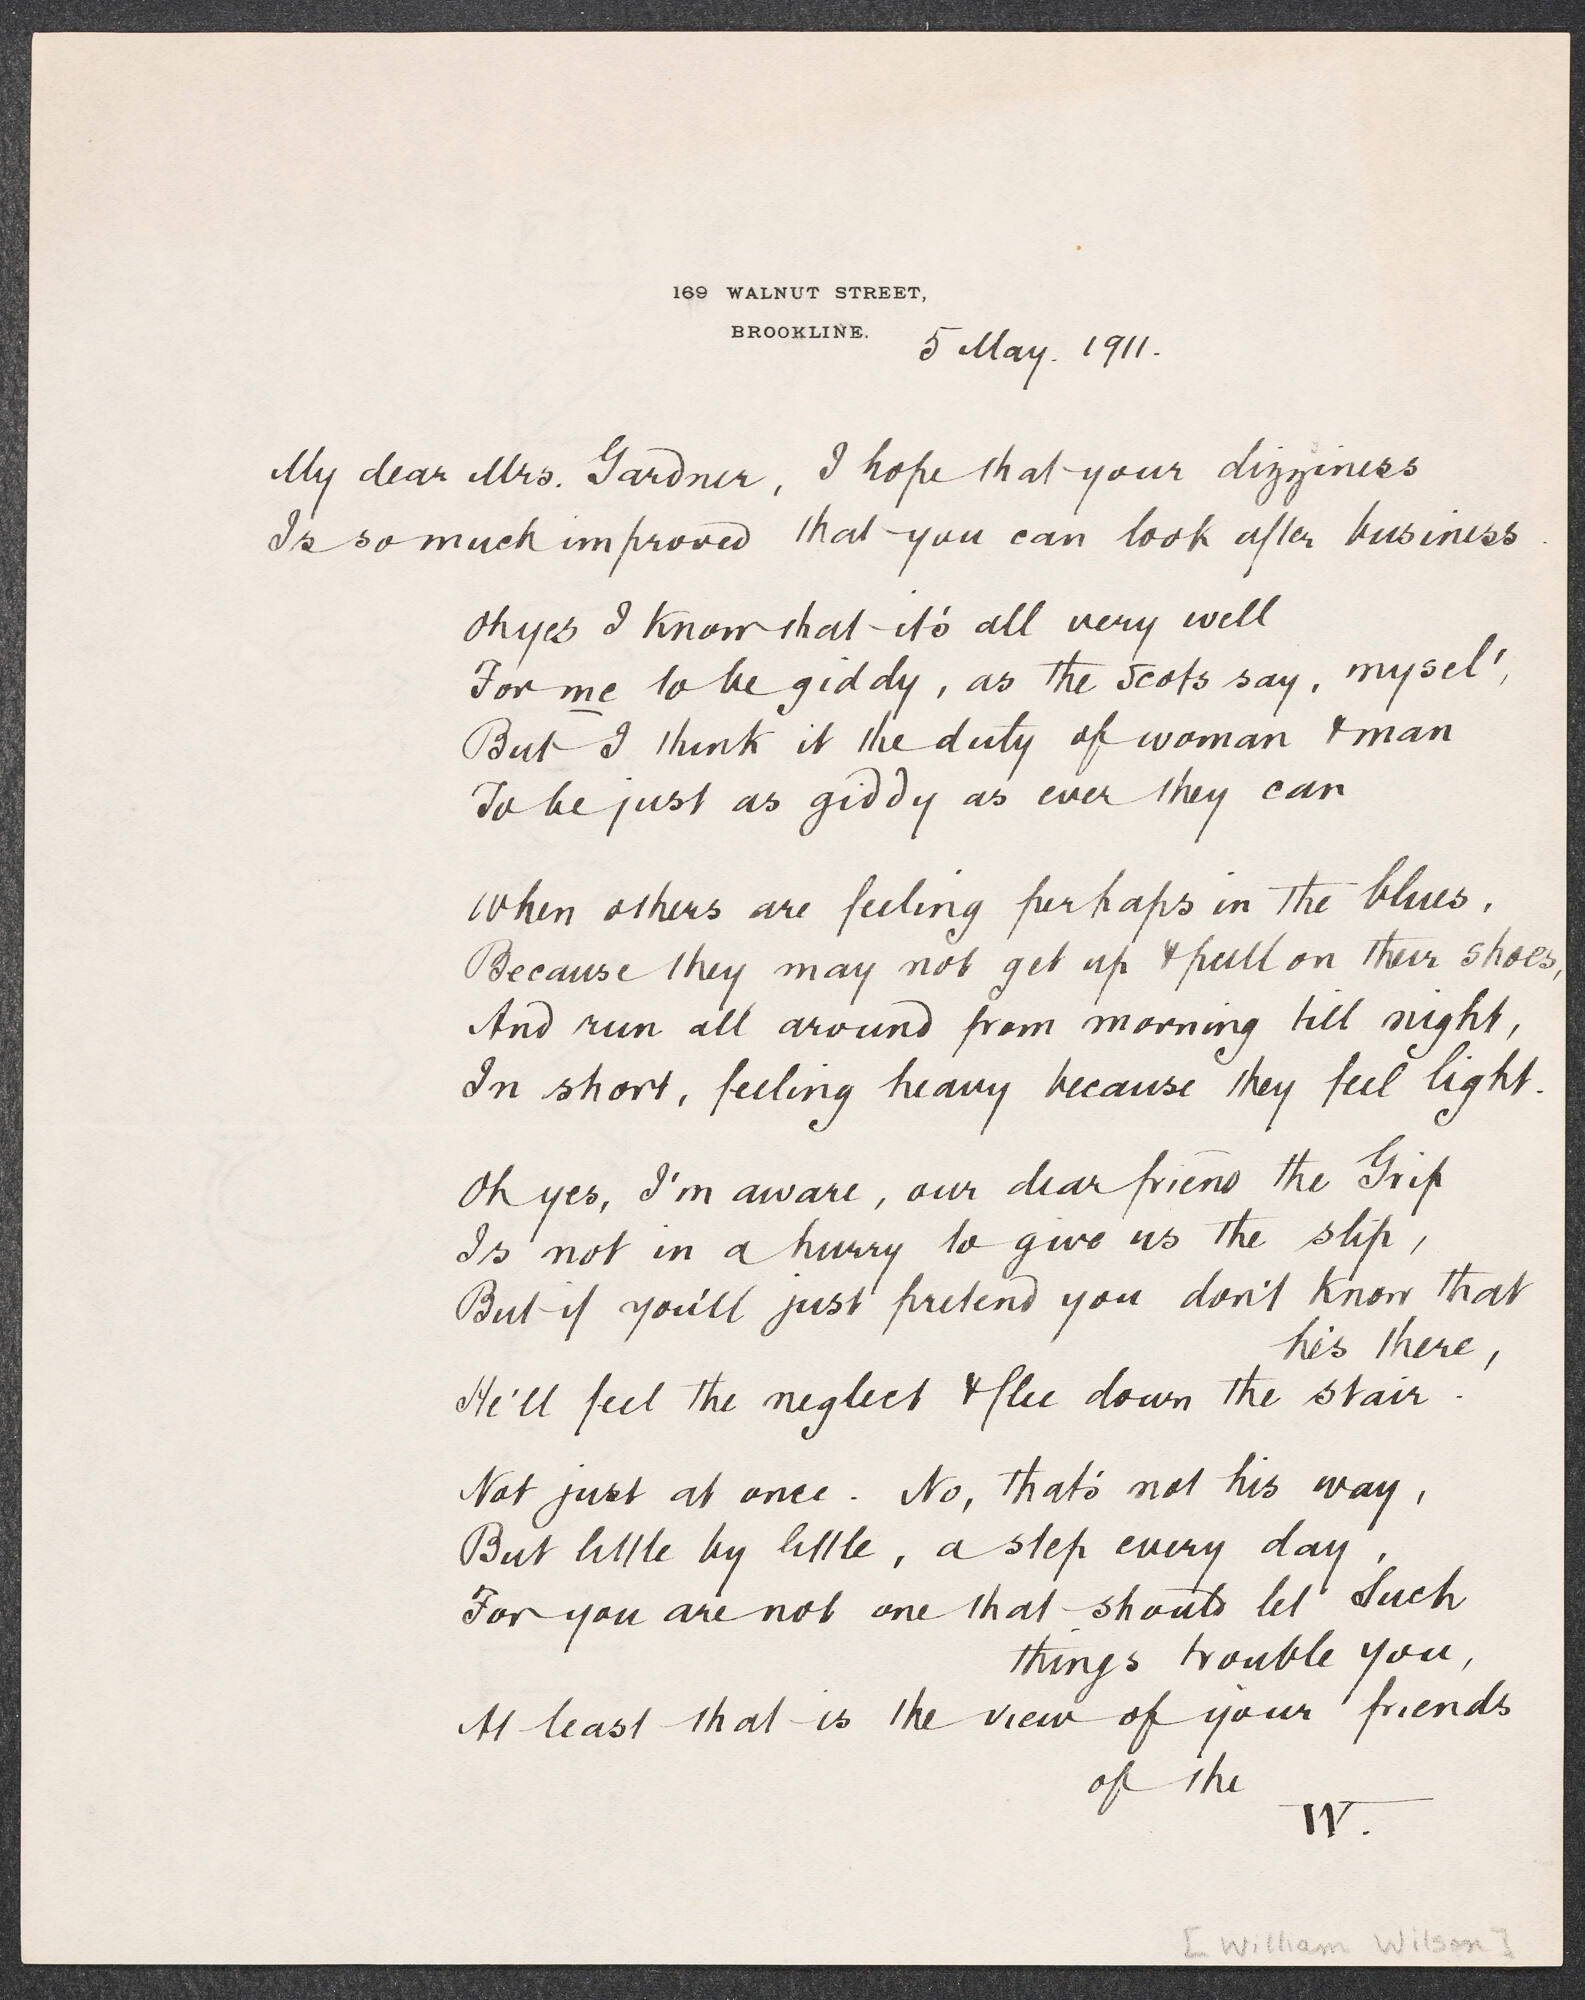 169 WALNUT STREET,
BROOKLINE.
5 May. 1911.
My dear Mrs. Gardner, I hope that your dizziness
Is so much improved that you can look after business.
Oh yes I know that it's all very well
For me to be giddy, as the Scots say, mysel',
But I think it the duty of woman & man
To be just as giddy as ever they can
When others are feeling perhaps in the blues,
Because they may not get up & pull on their shoes,
And run all around from morning till night,
In short, feeling heavy because they feel light.
Oh yes, I'm aware, our dear friend the Grip
Is not in a hurry to give us the slip,
But if you'll just pretend you don't know that
he's there,
He'll feel the neglect & flee down the stair.
Not just at once. No, that's not his way,
But little by little, a step every day,
For you are not one that should let such
things trouble you,
At least that is the view of your friends
of the
W.
[William Wilson]